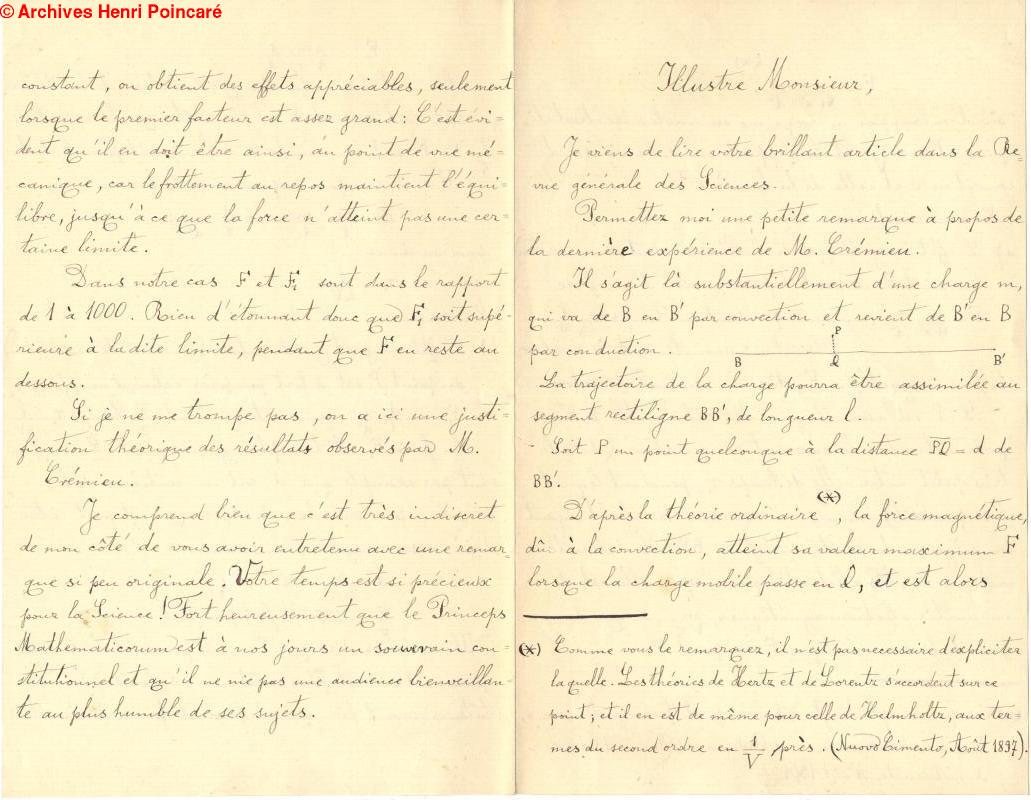 © Archives Henri Poincaré
constant, on obtient des effets appréciables, seulement
lorsque le premier facteur est assez grand: C'est évi=
dent qu'il en doit être ainsi, au point de vue mé=
canique, car le frottement au repos maintient l'équi=
libre, jusqu'à ce que la force n'atteint pas une cer=
taine limite.
Dans notre cas F et F₁ sont dans le rapport
de 1 à 1000. Rien d'étonnant donc que F₁ soit supé=
rieure à la dite limite, pendant que F en reste au
dessous.
Si je ne me trompe pas, on a ici une justi=
fication théorique des résultats observés par M.
Crémieu.
Je comprend bien que c'est très indiscret
de mon côté de vous avoir entretenu avec une remar=
que si peu originale. Votre temps est si précieux
pour la Science! Fort heureusement que le Princeps
Mathematicorum est à nos jours un souverain con=
stitutionnel et qu'il ne nie pas une audience bienveillan=
te au plus humble de ses sujets.
Illustre Monsieur,
Je viens de lire votre brillant article dans la Re=
vue générale des Sciences.
Permettez moi une petite remarque à propos de
la dernière expérience de M. Crémieu.
Il s'agit là substantiellement d'une charge m,
qui va de B en B' par convection et revient de B' en B
par conduction.
P
B Q B'
La trajectoire de la charge pourra être assimilée au
segment rectiligne BB', de longueur l.
Soit P un point quelconque à la distance PQ = d de
BB'.
D'après la théorie ordinaire (*), la force magnétique,
dûe à la convection, atteint sa valeur maximum F
lorsque la charge mobile passe en Q, et est alors
(*) Comme vous le remarquez, il n'est pas necessaire d'expliciter
laquelle. Les théories de Hertz et de Lorentz s'accordent sur ce
point; et il en est de même pour celle de Helmholtz, aux ter=
mes du second ordre en 1/V près. (Nuovo Cimento, Août 1897).